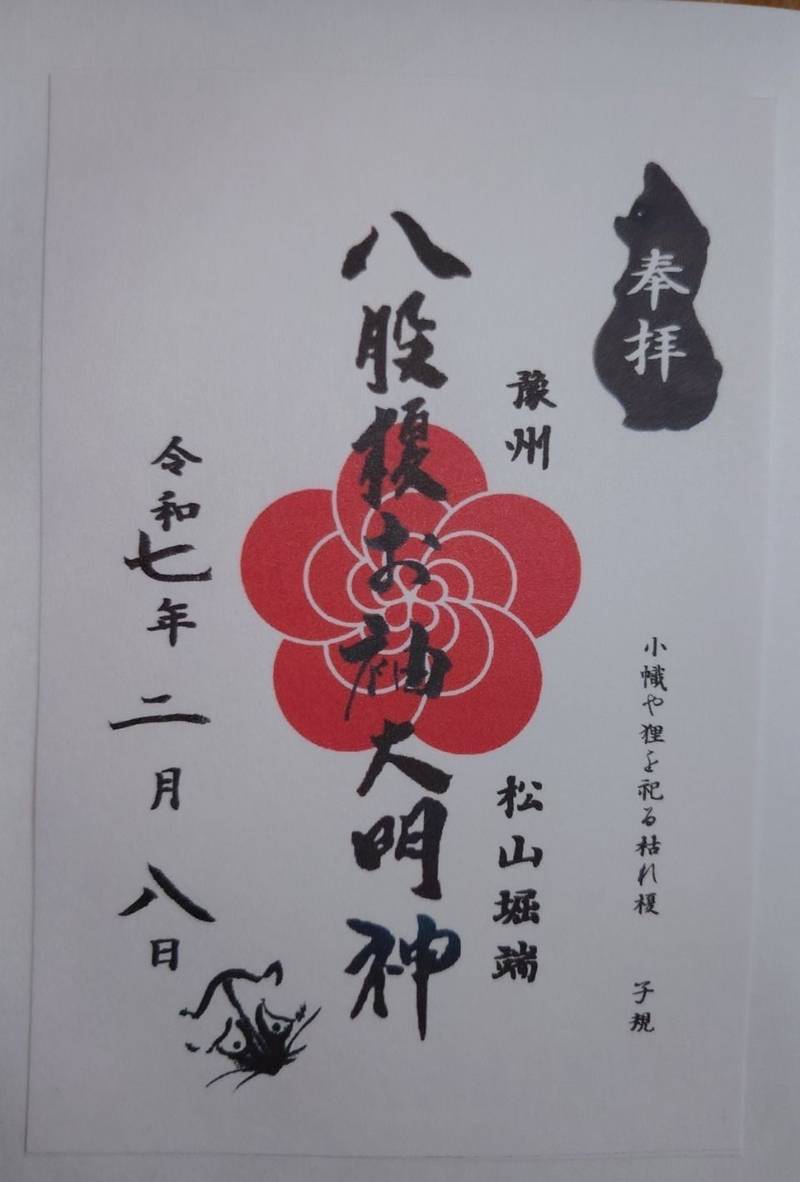 奉拝
小幟や狸を祀る枯れ榎 子規
豫州 松山堀端
八股榎お袖大明神
令和七年二月八日